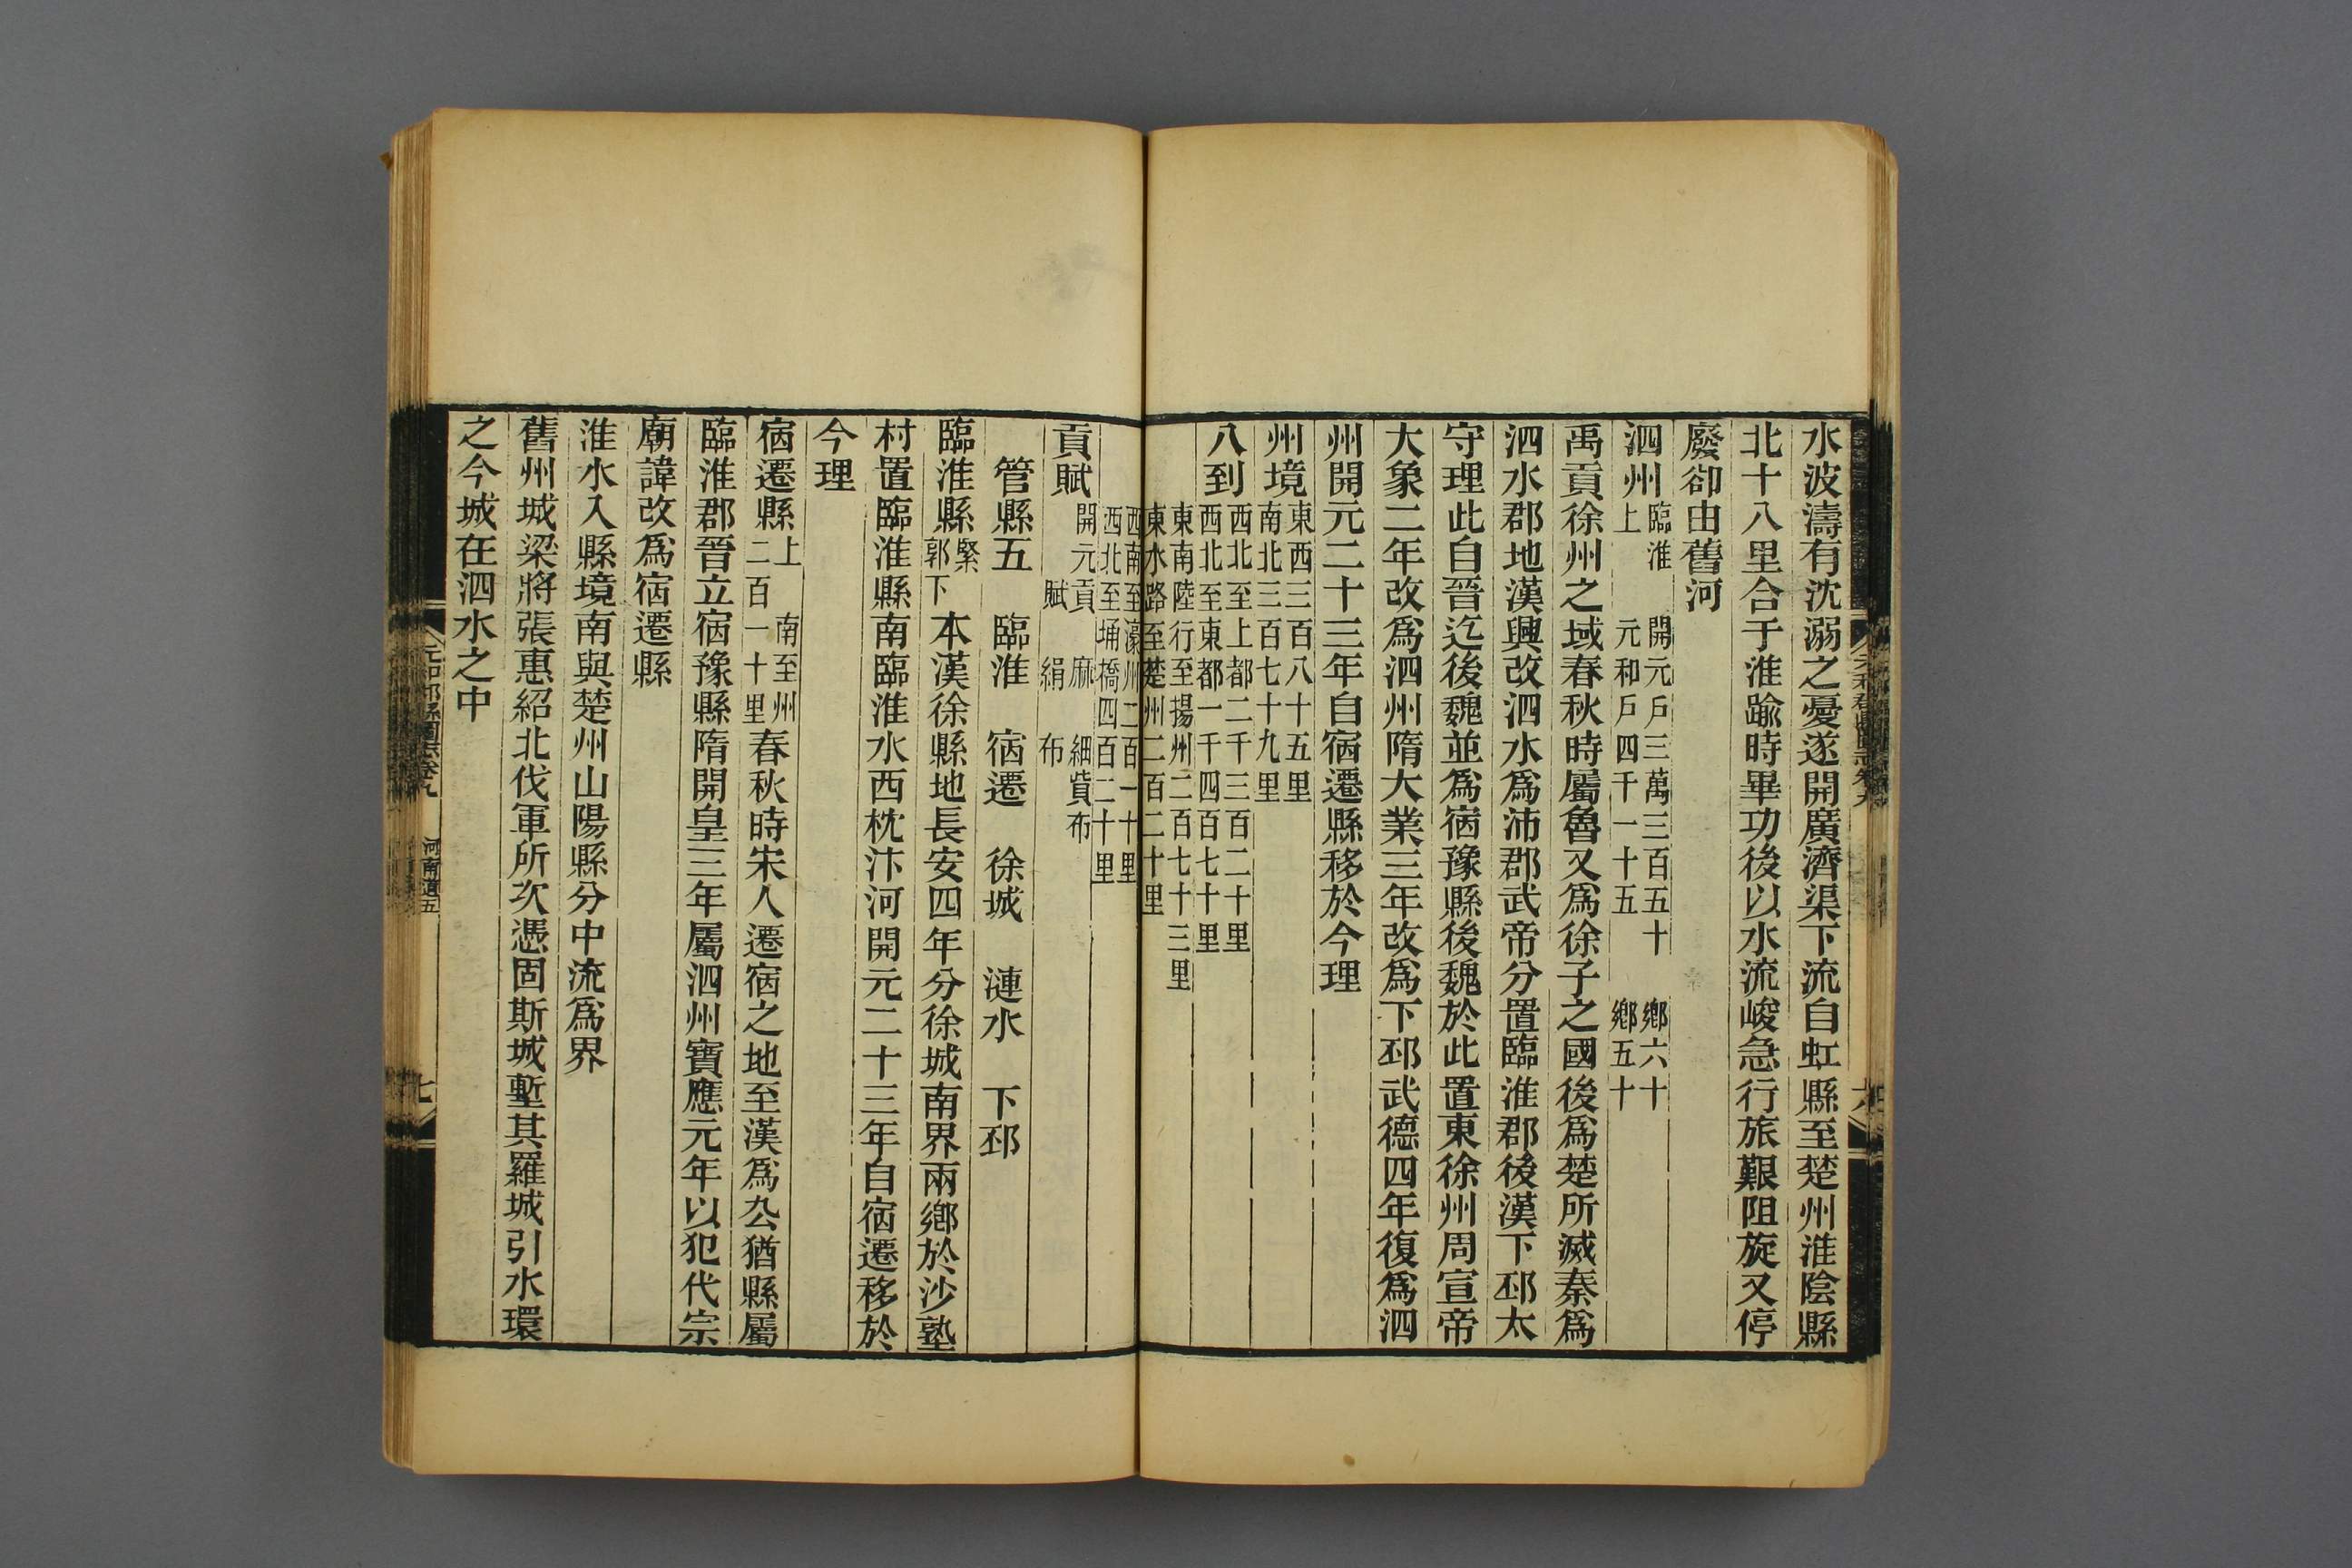 水波濤有沈溺之憂遂開廣濟渠下流自虹縣至楚州淮陰縣
北十八里合于淮踰時畢功後以水流峻急行旅艱阻旋又停
廢卻由舊河
泗州臨淮上 開元戶三萬三百五十 鄉六十
元和戶四千一十五 鄉五十
禹貢徐州之域春秋時屬魯又爲徐子之國後爲楚所滅秦爲
泗水郡地漢興改泗水爲沛郡武帝分置臨淮郡後漢下邳太
守理此自晉迄後魏並爲宿豫縣後魏於此置東徐州周宣帝
大象二年改爲泗州隋大業三年改爲下邳武德四年復爲泗
州開元二十三年自宿遷縣移於今理
州境東西三百八十五里
南北三百七十九里
八到西北至上都二千三百二十里
西北至東都一千四百七十里
東南陸行至揚州二百七十三里
東水路至楚州二百二十里
西南至濠州二百一十里
西北至埇橋四百二十里
貢賦開元貢 麻 細貲布
賦 絹 布
管縣五 臨淮 宿遷 徐城 漣水 下邳
臨淮縣緊郭下 本漢徐縣地長安四年分徐城南界兩鄉於沙塾
村置臨淮縣南臨淮水西枕汴河開元二十三年自宿遷移於
今理
宿遷縣上 南至州二百一十里 春秋時宋人遷宿之地至漢爲厹猶縣屬
臨淮郡晉立宿豫縣隋開皇三年屬泗州寶應元年以犯代宗
廟諱改爲宿遷縣
淮水入縣境南與楚州山陽縣分中流爲界
舊州城梁將張惠紹北伐軍所次憑固斯城塹其羅城引水環
之今城在泗水之中
元和郡縣圖志卷九
河南道五
七